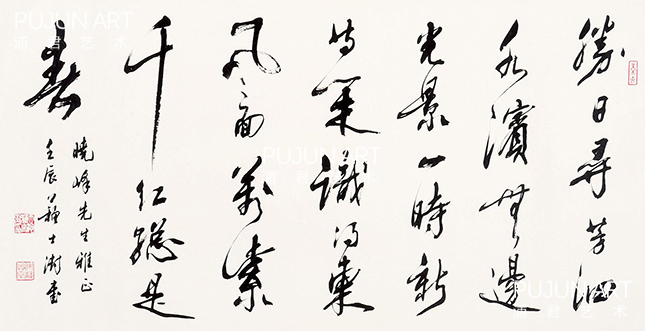 勝日尋芳泗
水濱無邊
光景一時新
等閒識得東
風面萬紫
千红總是
春
曉峰先生雅正
壬辰蘇士澍書
PUJUN ART
浦君艺术
PUJUN ART
浦君艺术
PUJUN ART
浦君艺术